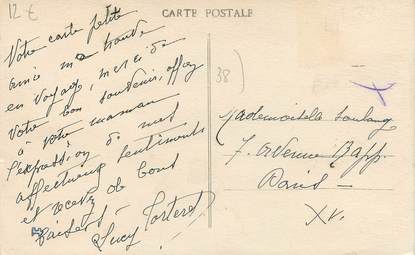 12 €
CARTE POSTALE
38)
Votre carte petite
amie me trouve
en voyage, merci de
votre bon souvenir, offrez
à votre maman
l'expression de mes
affectueux sentiments
et recevez de bons
baisers.
Lucy
Mademoiselle
7. avenue Rapp.
Paris —
XV.